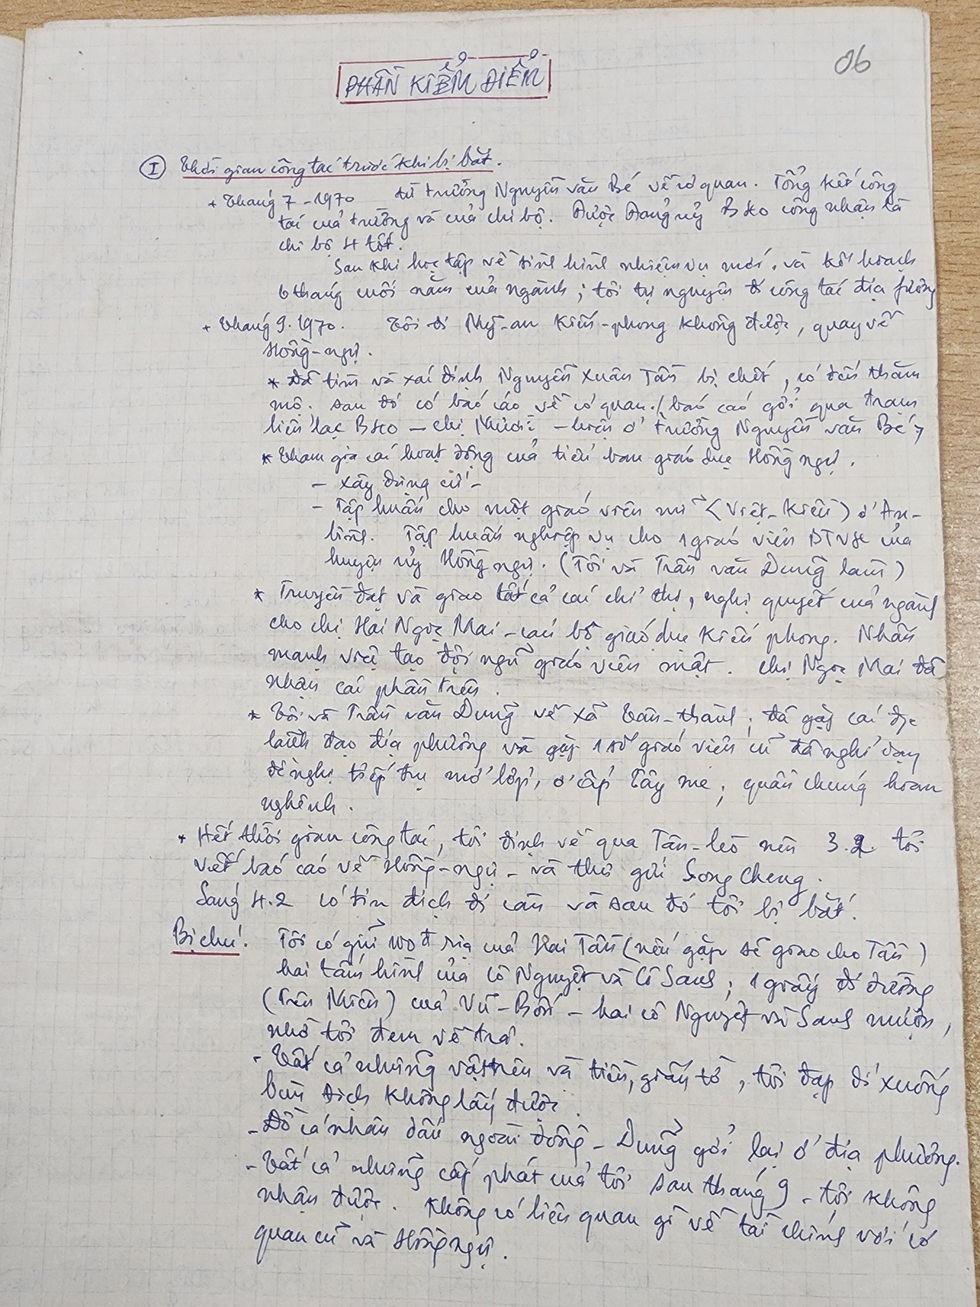 06
PHẦN KIỂM ĐIỂM
I Thời gian công tác trước khi bị bắt.
+ Tháng 7-1970 từ trường Nguyễn Văn Bé về cơ quan. Tổng kết công
tác của trường và của chi bộ. Được Đảng ủy B40 công nhận là
chi bộ 4 tốt.
Sau khi học tập về tình hình nhiệm vụ mới, và kế hoạch
6 tháng cuối năm của ngành; tôi tự nguyện đi công tác địa phương
+ Tháng 9.1970. Tôi đi Mỹ-an Kiến-phong không được, quay về
Hồng-ngự.
* Đã tìm và xác định Nguyễn Xuân Tấn bị chết, có đến thăm
mộ. Sau đó có báo cáo về cơ quan. (báo cáo gởi qua trạm
liên lạc B40 – chị Mười – hiện ở trường Nguyễn Văn Bé)
* Tham gia các hoạt động của tiểu ban giáo dục Hồng ngự.
– Xây dựng cứ –
– Tập huấn cho một giáo viên nữ (Việt-Kiều) ở An-
bình. Tập huấn nghiệp vụ cho 1 giáo viên BTVH của
huyện ủy Hồng ngự. (Tôi và Trần Văn Dung làm)
* Truyền đạt và giao tất cả các chỉ thị, nghị quyết của ngành
cho chị Hai Ngọc Mai – cán bộ giáo dục Kiến phong. Nhấn
mạnh việc tạo đội ngũ giáo viên mật. Chị Ngọc Mai đã
nhận các phần trên.
* Tôi và Trần Văn Dung về xã Tân-thành; đã gặp các đ/c
lãnh đạo địa phương và gặp 1 số giáo viên cũ đã nghỉ dạy
đề nghị tiếp tục mở lớp, ở ấp Cây me; quần chúng hoan
nghênh.
+ Hết thời gian công tác, tôi định về qua Tân-lèo nên 3.2 tôi
viết báo cáo về Hồng-ngự – và thư gửi Song Cheng.
Sáng 4.2 có tin địch đi càn và sau đó tôi bị bắt.
Bị chú: Tôi có giữ 100đ của Hai Tấn (nếu gặp sẽ giao cho Tấn)
hai tấm hình của cô Nguyệt và Cô Sang; 1 giấy đi đường
(Trên Miên) của Vũ-Bốn – hai cô Nguyệt và Sang mượn,
nhờ tôi đem về trả.
- Tất cả những vật trên và tiền, giấy tờ, tôi đạp đi xuống
bùn địch không lấy được.
- Đồ cá nhân dấu ngoài đồng – Dung gởi lại ở địa phương.
- Tất cả những cấp phát của tôi sau tháng 9 – tôi không
nhận được. Không có liên quan gì về tài chính với cơ
quan cũ và Hồng ngự.